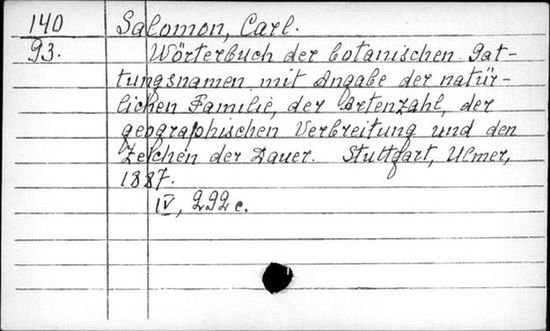 140 Salomon, Carl.
93. Wörterbuch der botanischen Gat-
tungsnamen mit Angabe der natür-
lichen Familie, der Artenzahl, der
geographischen Verbreitung und den
Zeichen der Dauer. Stuttgart, Ulmer,
1887.
IV, 292 c.